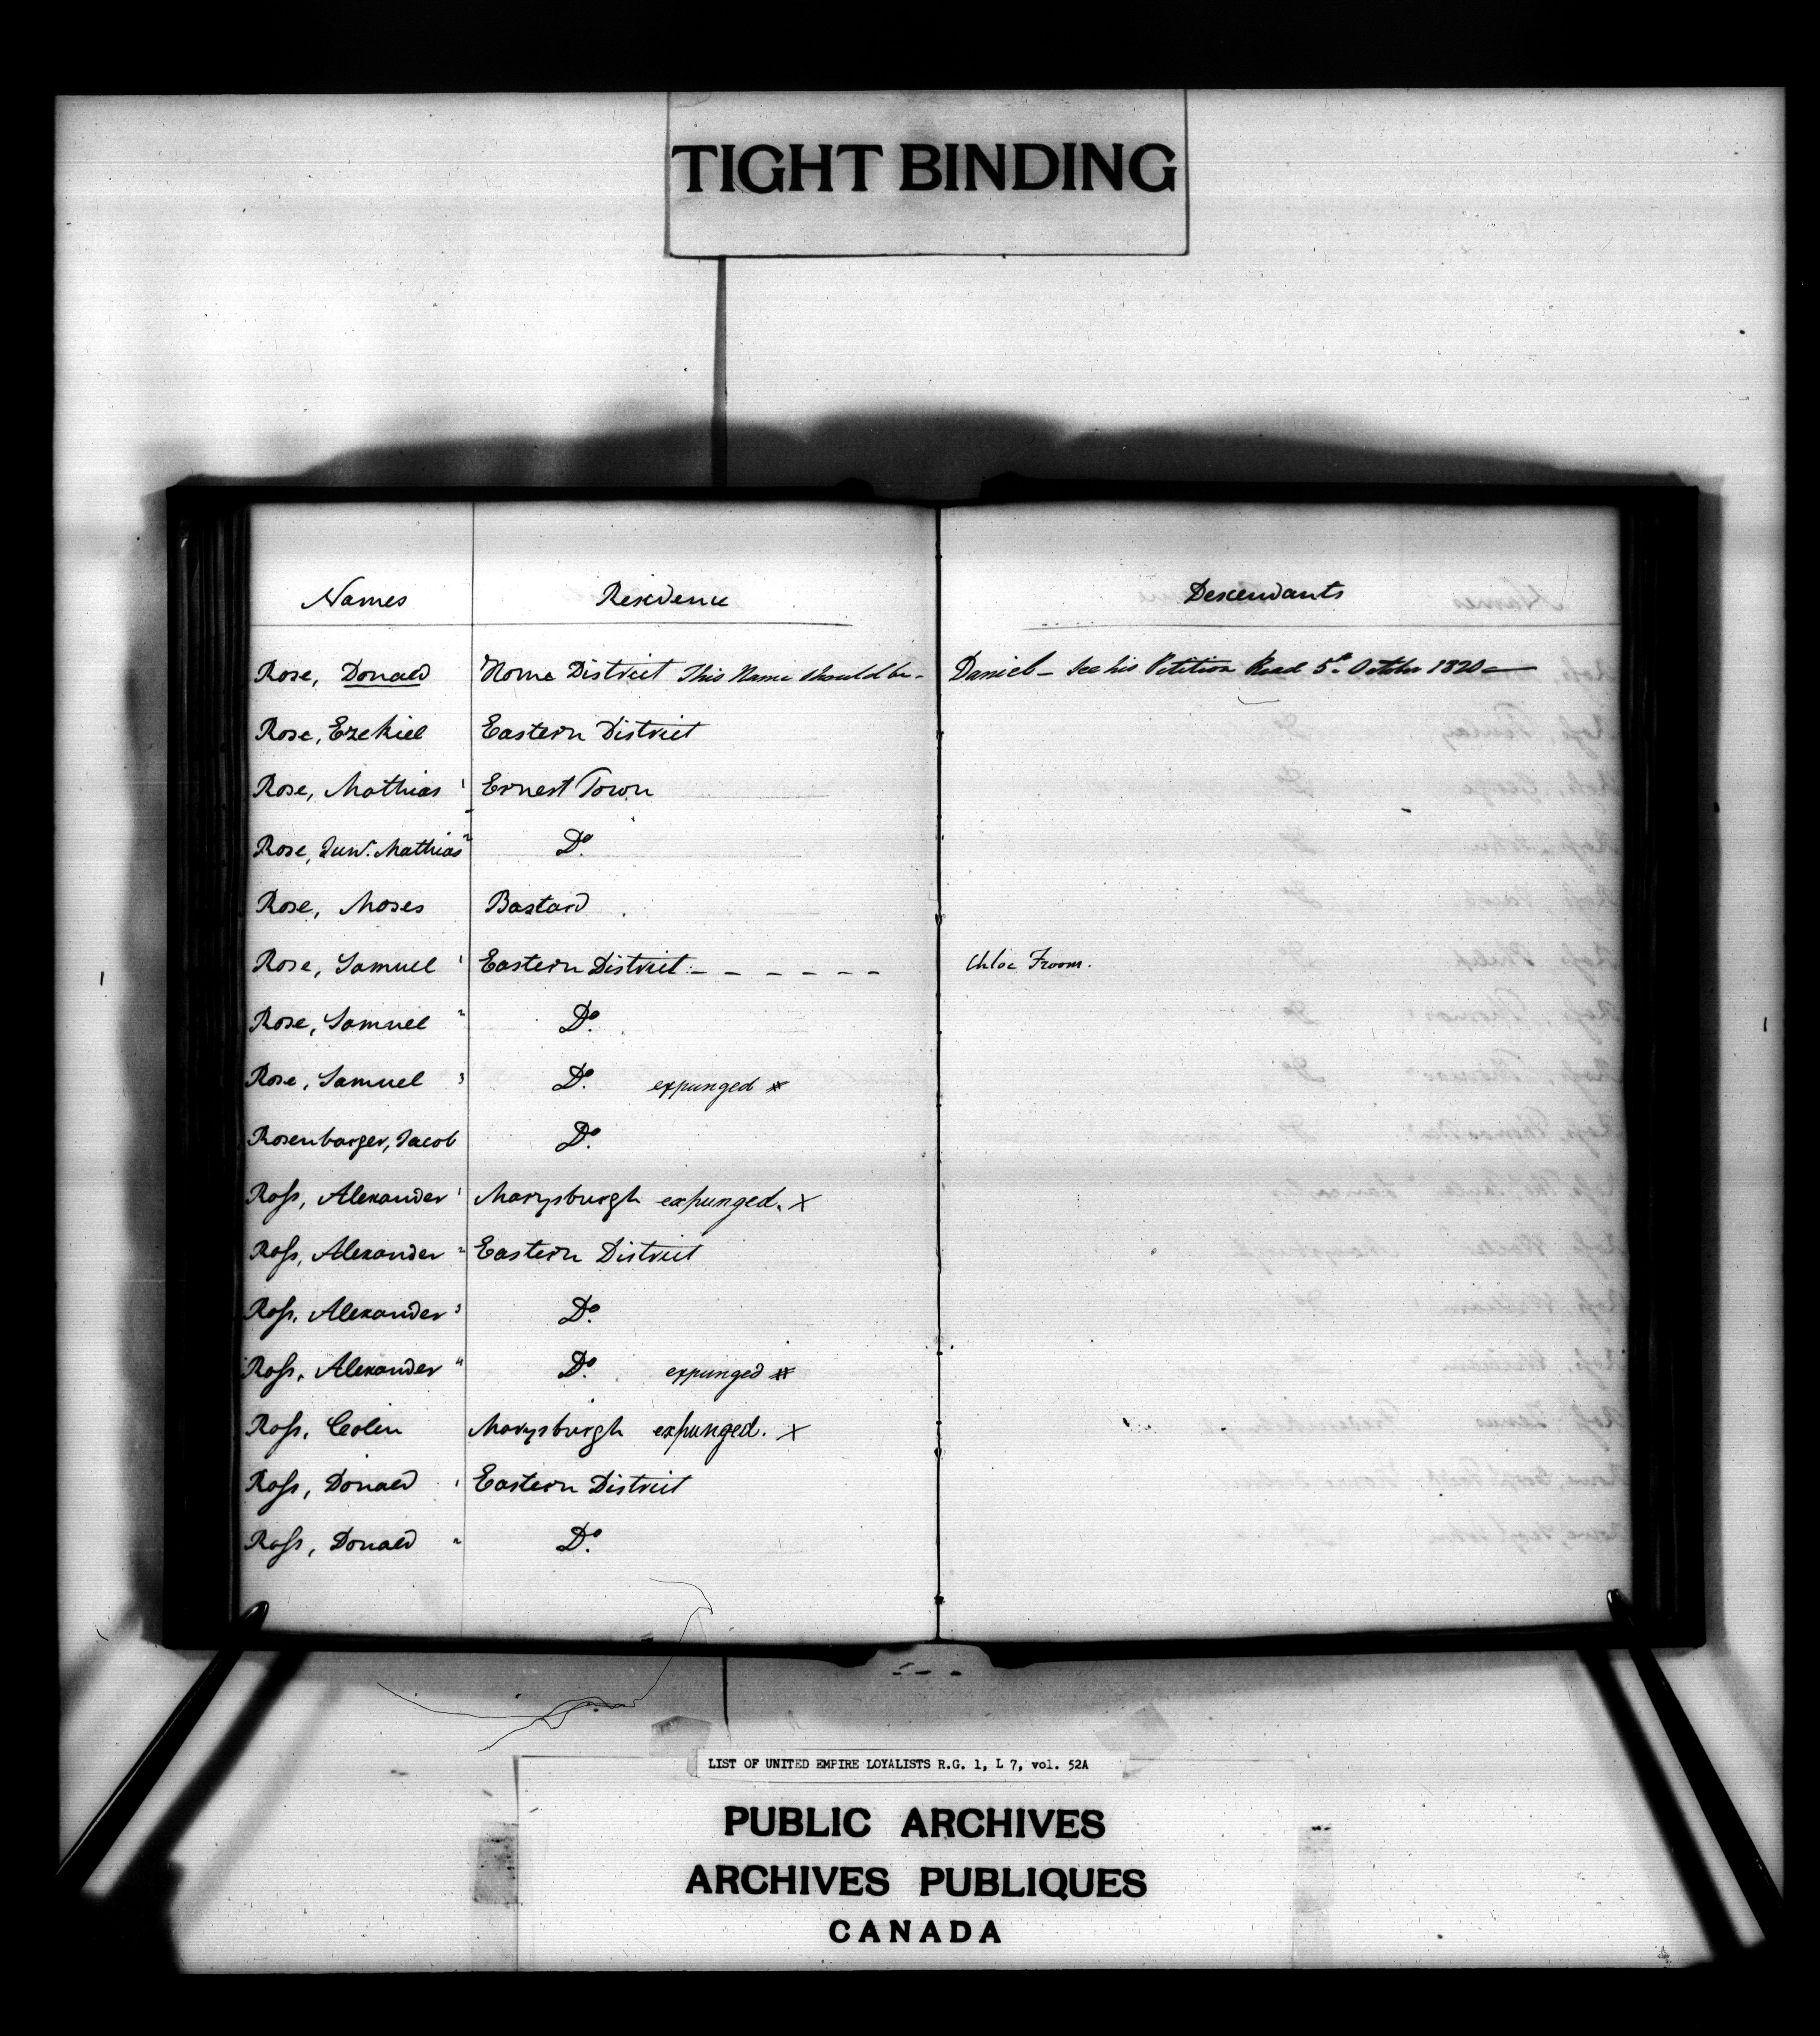 TIGHT BINDING
Names Residence Descendants
Rose, Donald Home District This Name should be - Daniel - See his Petition Read 5th October 1820
Rose, Ezekiel Eastern District
Rose, Mathias 1 Ernest Town
Rose, Junr. Mathias 2 Do.
Rose, Moses Bastard
Rose, Samuel 1 Eastern District - - - - - - Chloe Froom.
Rose, Samuel 2 Do.
Rose, Samuel 3 Do. expunged
Rosenbarger, Jacob Do.
Ross, Alexander 1 Marysburgh expunged. X
Ross, Alexander 2 Eastern District
Ross, Alexander 3 Do.
Ross, Alexander 4 Do. expunged
Ross, Colin Marysburgh expunged. X
Ross, Donald 1 Eastern District
Ross, Donald 2 Do.
LIST OF UNITED EMPIRE LOYALISTS R.G. 1, L 7, vol. 52A
PUBLIC ARCHIVES
ARCHIVES PUBLIQUES
CANADA